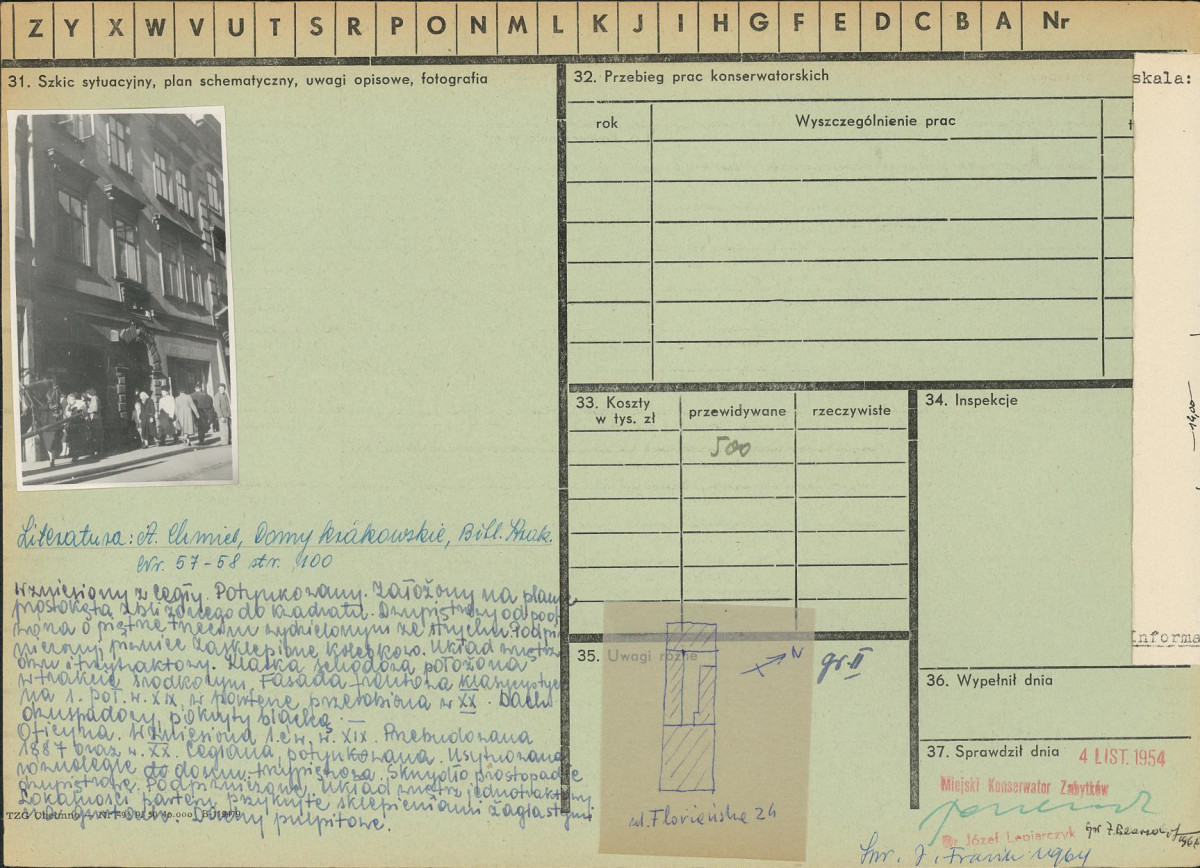 Z Y X W V U T S R P O N M L K J I H G F E D C B A Nr
31. Szkic sytuacyjny, plan schematyczny, uwagi opisowe, fotografia
Literatura: A. Chmiel, Domy krakowskie, Bibl. Krak.
Nr. 57-58 str. 100
Wzniesiony z cegły. Potynkowany. Założony na planie
prostokąta zbliżonego do kwadratu. Dwupiętrowy od
o piętrze trzecim wydzielonym ze strychu. Podpi
wniczony, piwnice zasklepione kolebkowo. Układ
trzytraktowy. Klatka schodowa położona
w trakcie środkowym. Fasada frontowa klasycystycz
na 1. poł. w. XIX, w parterze przerobiona w XX. Dach
dwuspadowy, pokryty blachą. —
Oficyna. Wzniesiona 1. ćw. w. XIX. Przebudowana
1887 oraz w. XX. Ceglana, potynkowana. Usytuowana
równolegle do domu, trzypiętrowa. Skrzydło prostopadłe
dwupiętrowe. Podpiwniczone. Układ wnętrz jednotraktowy.
Lokalności parteru przykryte sklepieniami żaglastymi
Dachy pulpitowe.
TZG Chełmno
32. Przebieg prac konserwatorskich
rok
Wyszczególnienie prac
33. Koszty
w tys. zł
przewidywane
rzeczywiste
500
34. Inspekcje
35. Uwagi różne
N
gr. II
ul. Floriańska 24
36. Wypełnił dnia
37. Sprawdził dnia
4 LIST. 1954
Miejski Konserwator Zabytków
Dr Józef Lepiarczyk
skala:
Informa